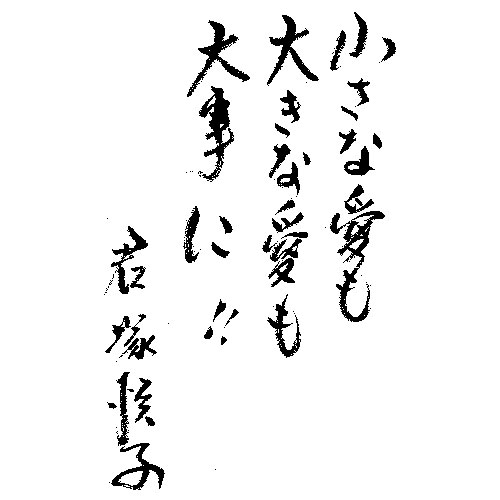 小さな愛も
大きな愛も
大事に〃
君塚悦子